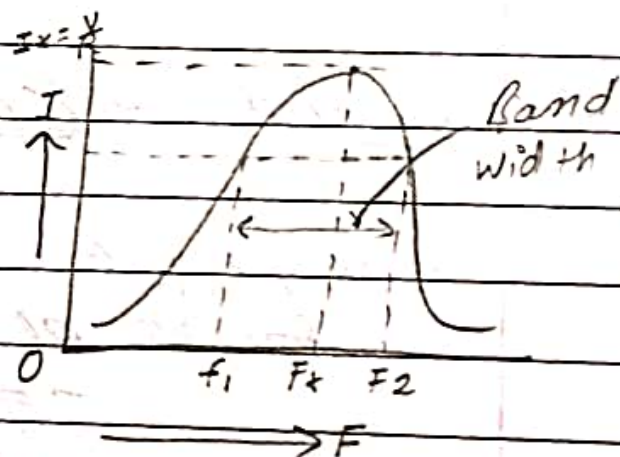 Ix = V/R
I
Band
width
O
f1
Fx
F2
F